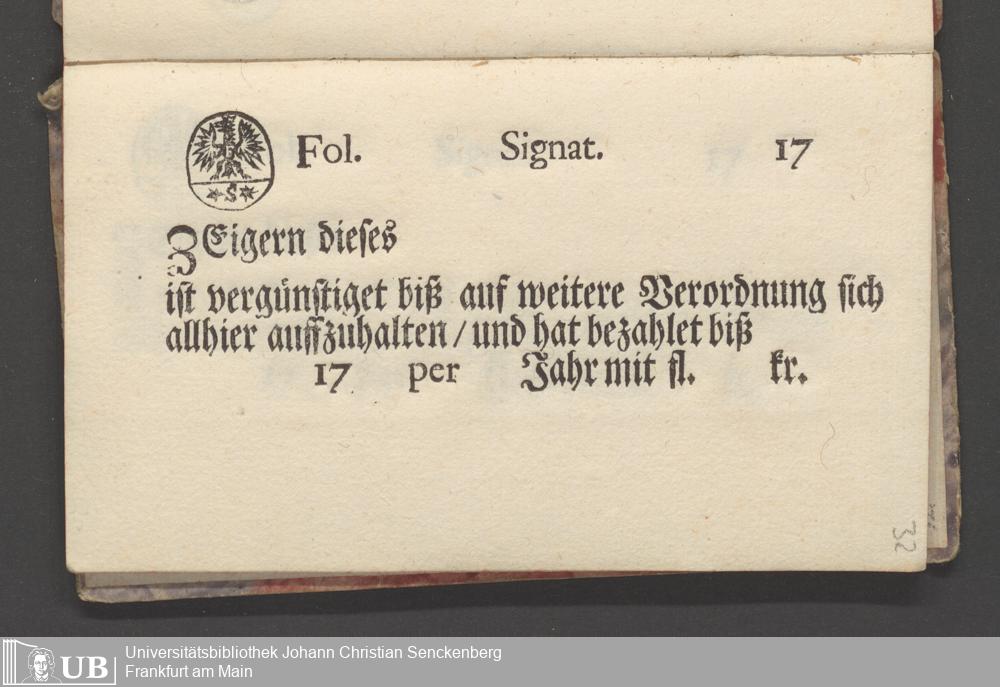 Fol. Signat. 17
S
ZEigern dieſes
iſt vergünſtiget biß auf weitere Verordnung ſich
allhier auffzuhalten / und hat bezahlet biß
17 per Jahr mit fl. kr.
32
UB
Universitätsbibliothek Johann Christian Senckenberg
Frankfurt am Main